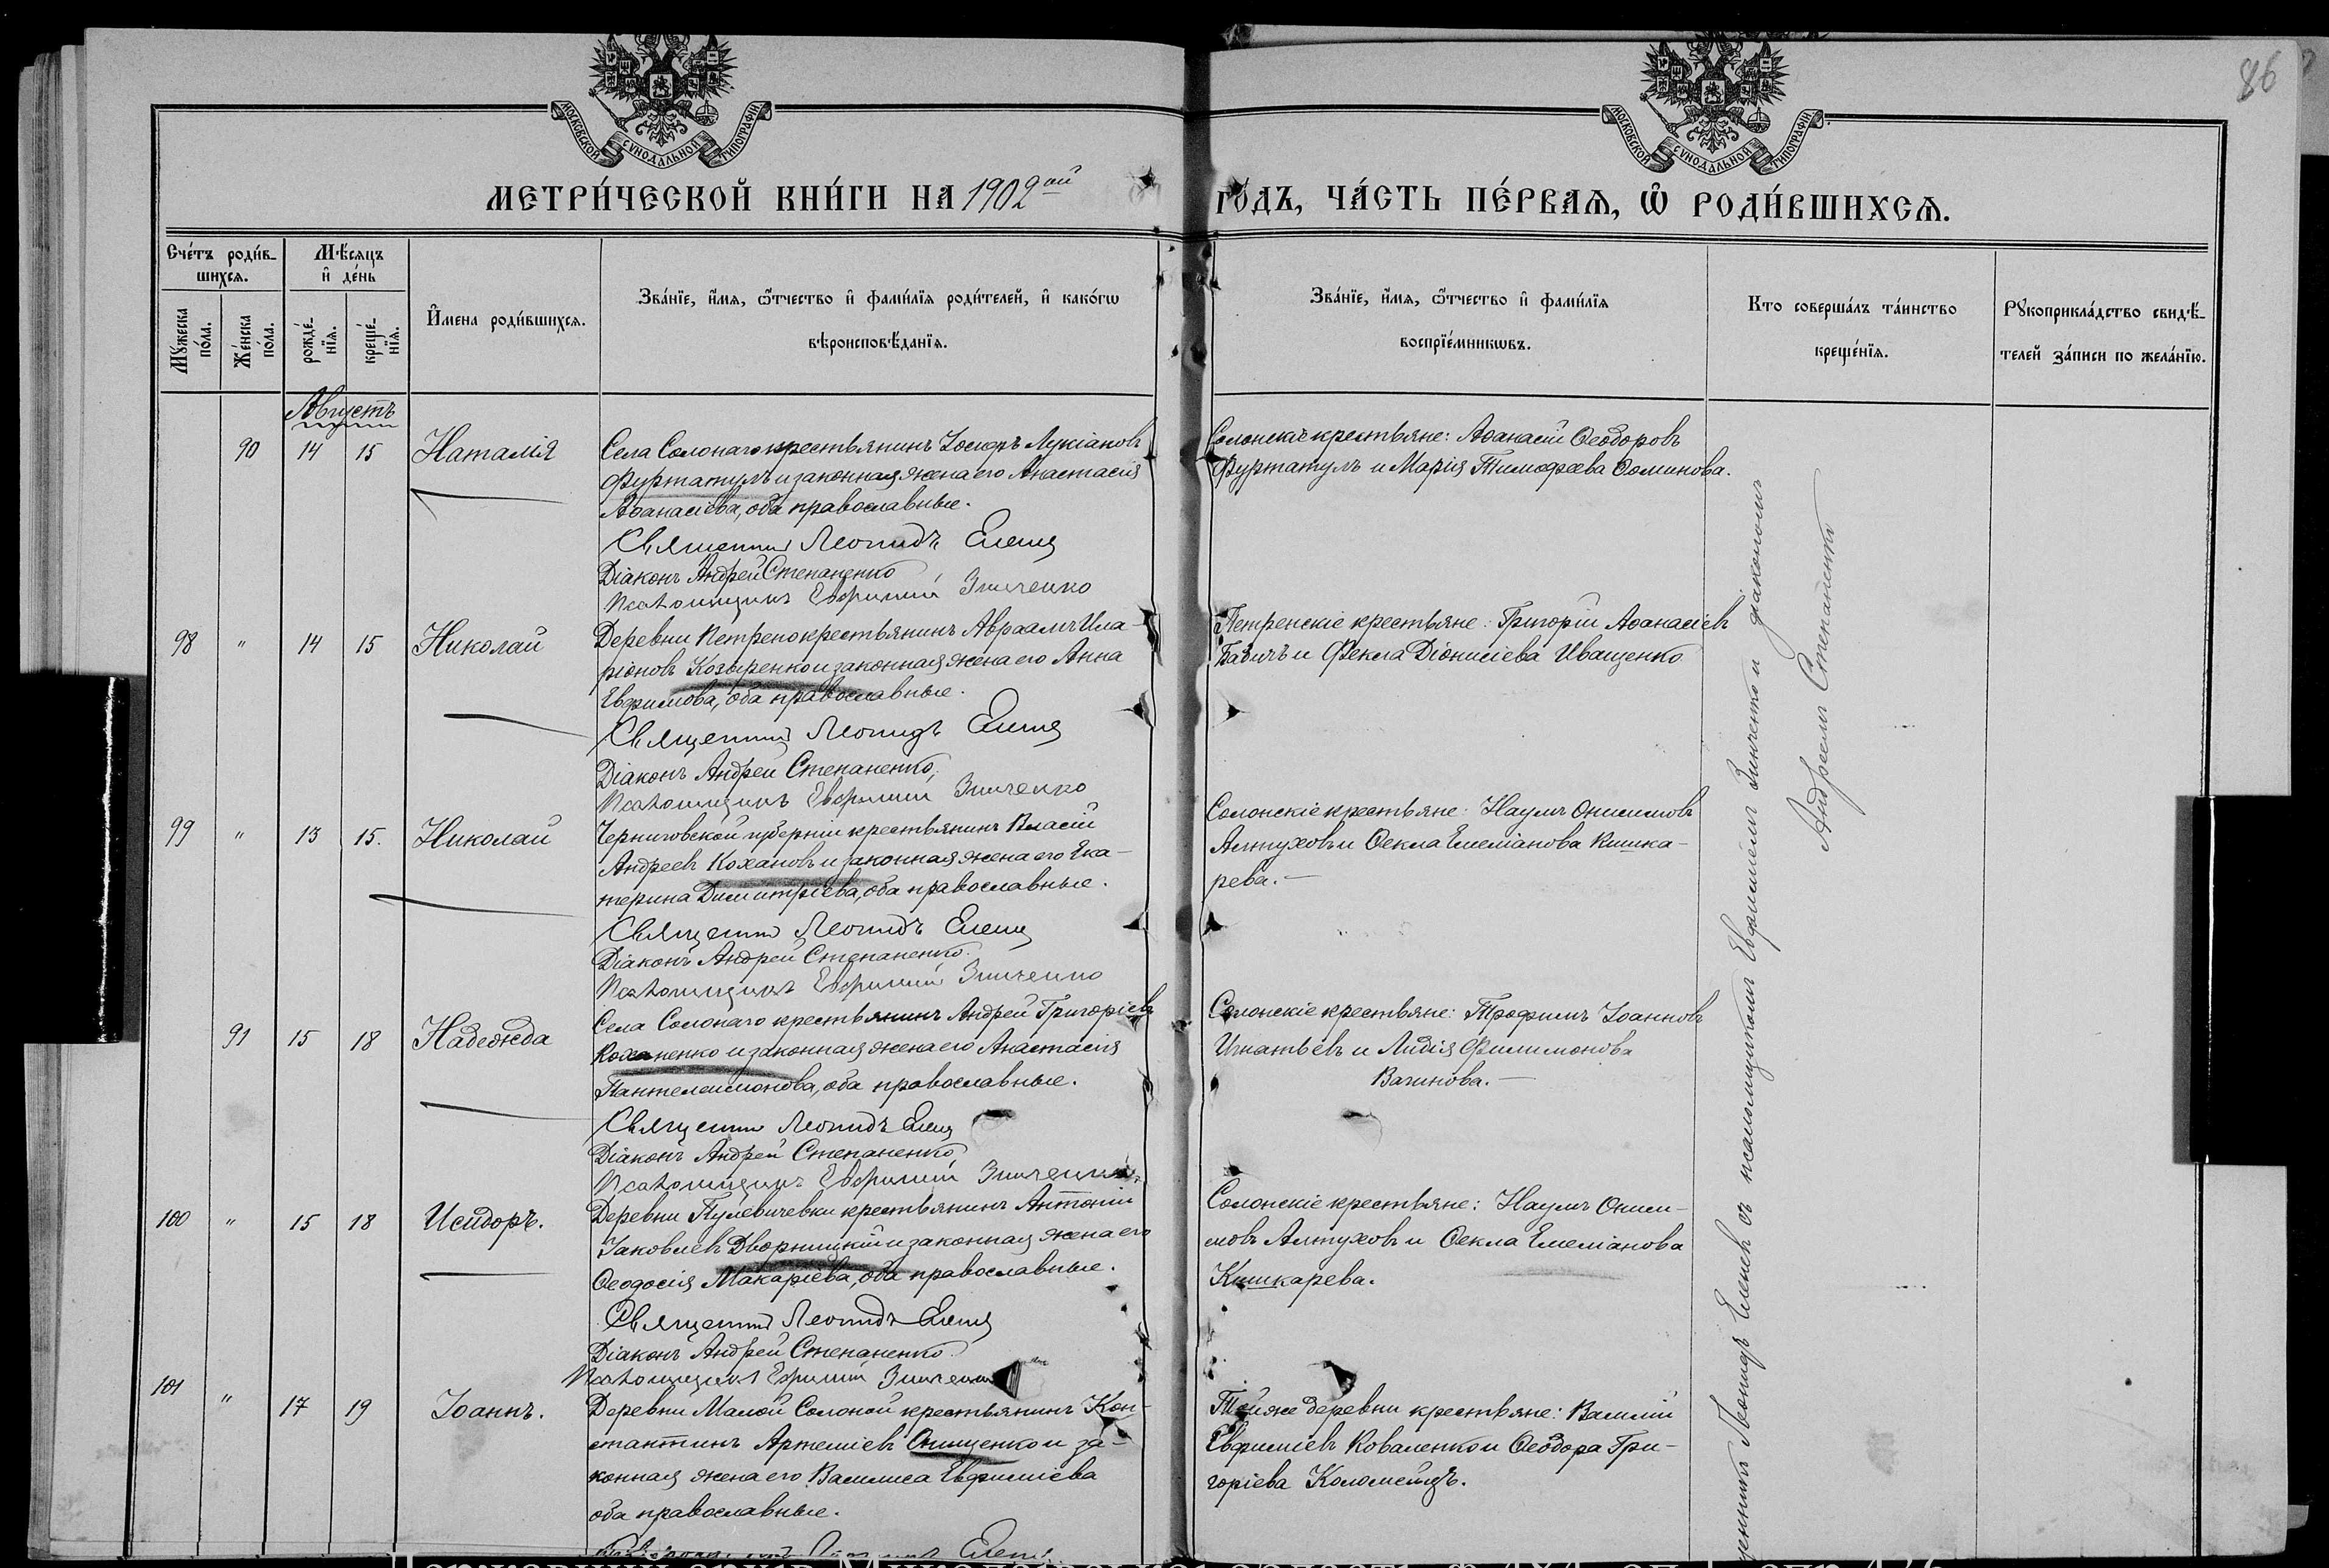 86
МОСКОВСКОЙ СУНОДАЛЬНОЙ ТИПОГРАФІИ
МОСКОВСКОЙ СУНОДАЛЬНОЙ ТИПОГРАФІИ
МЕТРИ́ЧЕСКОЙ КНИ́ГИ НА 1902ой ГОДЪ, ЧА́СТЬ ПЕ́РВАЯ, Ѡ҆ РОДИ́ВШИХСЯ.
Сче́тъ роди́в-
шихся.
Му́жеска
по́ла.
Же́нска
по́ла.
Мѣ́сяцъ
и҆ де́нь
рожде́-
нїя.
креще́-
нїя.
И҆мена роди́вшихся.
Зва́нїе, и҆́мя, ѻ҆́тчество и҆ фами́лїя роди́телей, и҆ како́гѡ
вѣроисповѣ́данїя.
Зва́нїе, и҆́мя, ѻ҆́тчество и҆ фами́лїя
воспрїе́мникѡвъ.
Кто соверша́лъ та́инство
креще́нїя.
Рꙋкоприкла́дство свидѣ́-
телей за́писи по жела́нїю.
Августъ
90 14 15 Наталія
Села Солонаго крестьянинъ Іосифъ Лукіановъ
Фуртатулъ и законная жена его Анастасія
Аѳанасіева, оба православные.
Священникъ Леонидъ Еленев
Діаконъ Андрей Степаненко
Псаломщикъ Евфимій Зинченко
Солонскіе крестьяне: Аѳанасій Ѳеодоровъ
Фуртатулъ и Марія Тимофеева Ѳоминова.
98 " 14 15 Николай
Деревни Петрено крестьянинъ Авраамъ Ила-
ріоновъ Козыренко и законная жена его Анна
Евфимова, оба православные.
Священникъ Леонидъ
Діаконъ Андрей Степаненко
Псаломщикъ Евфимій Зинченко
Петренскіе крестьяне: Григорій Аѳанасіевъ
Бабичъ и Фекла Діонисіева Иващенко
99 " 13 15. Николай
Черниговской губерніи крестьянинъ Власій
Андреевъ Кохановъ и законная жена его Ека-
терина Димитріева, оба православные.
Священникъ Леонидъ
Діаконъ Андрей Степаненко.
Псаломщикъ Евфимій Зинченко
Солонскіе крестьяне: Наумъ Онисимовъ
Алтуховъ и Ѳекла Емеліанова Кишка-
рева.-
91 15 18 Надежда
Села Солонаго крестьянинъ Андрей Григоріевъ
Коханенко и законная жена его Анастасія
Пантелеимонова, оба православные.
Священникъ Леонидъ
Діаконъ Андрей Степаненко
Псаломщикъ Евфимій Зинченко
Солонскіе крестьяне: Трофимъ Іоанновъ
Игнатьевъ и Лидія Филимонова
Вагинова.-
100 " 15 18 Исидоръ.
Деревни Пулевичевки крестьянинъ Антоній
Іаковлевъ Дворницкій и законная жена его
Ѳеодосія Макаріева, оба православные.
Священникъ Леонидъ
Діаконъ Андрей Степаненко
Псаломщикъ Евфимій
Солонскіе крестьяне: Наумъ Ониси-
мовъ Алтуховъ и Ѳекла Емеліанова
Кишкарева.
101 " 17 19 Іоаннъ.
Деревни Малой Солоной крестьянинъ Кон-
стантинъ Артеміевъ Онищенко и за-
конная жена его Василиса Евфиміева
оба православные.
Той же деревни крестьяне: Василій
Евфиміевъ Коваленко и Ѳеодора Гри-
горіева Коломейцъ.
Леонидъ съ псаломщикомъ Евфиміемъ Зинченко и діакономъ
Андреемъ Степаненко